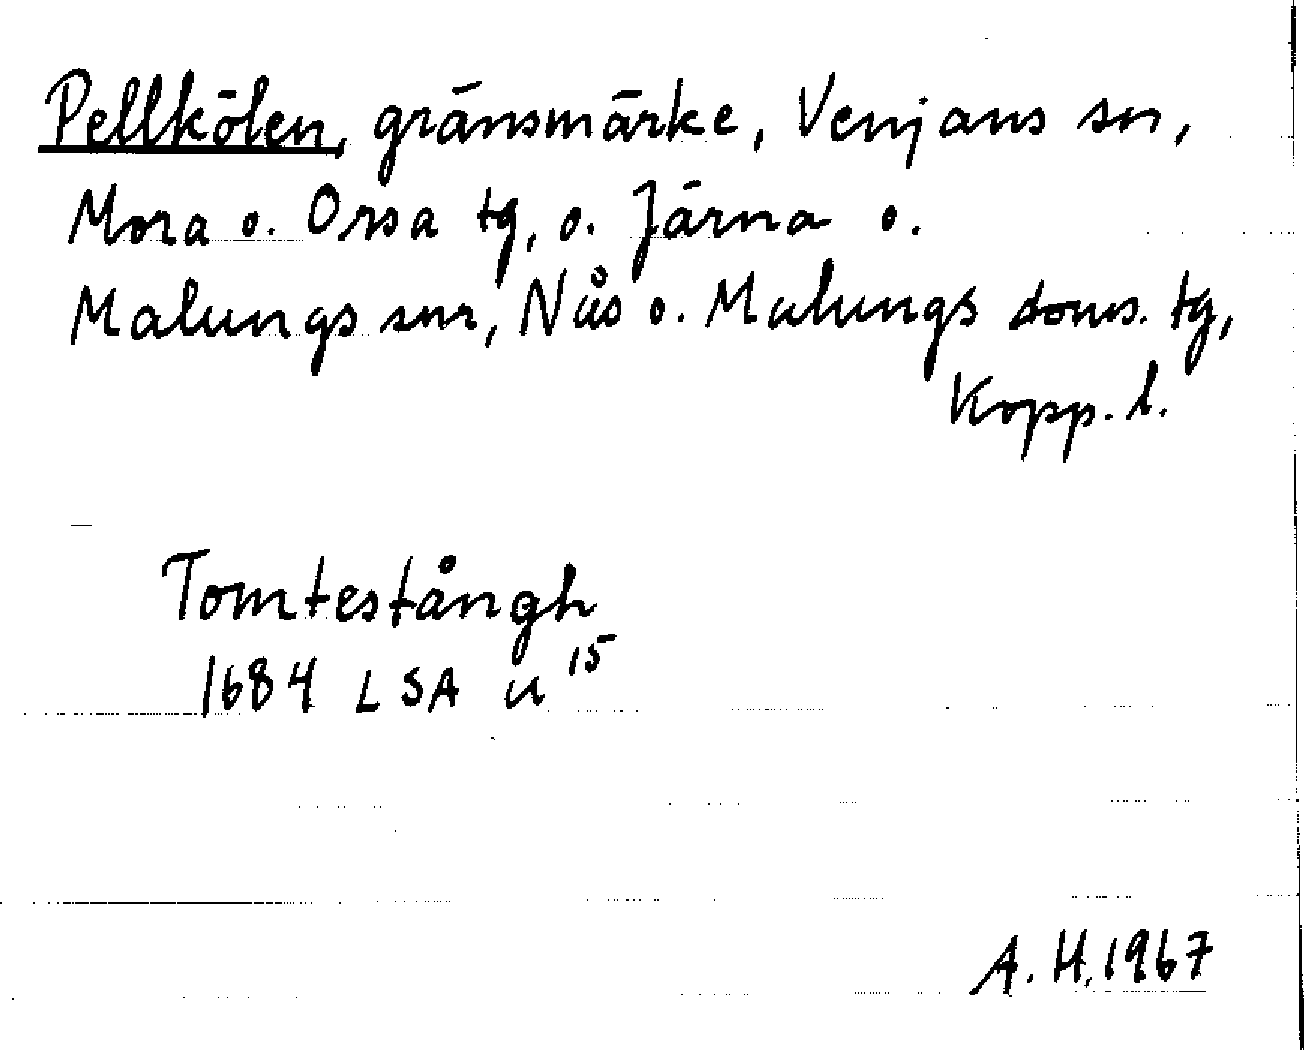 Pellkölen, gränsmärke, Venjans sn,
Mora o. Orsa tg, o. Järna o.
Malungs snr, Nås o. Malungs doms. tg,
Kopp. l.
Tomtestångh
1684 LSA U 15
A. H. 1967